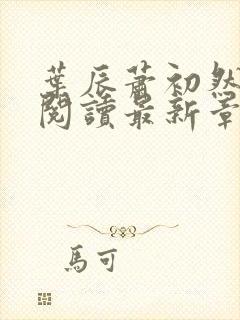 葉辰蕭初然
閱讀最新章
馬可